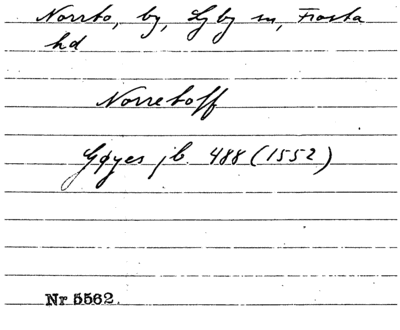 Norrto, by, Lyby sn, Frosta
hd
Norretoff
Gøyes jb. 488 (1552)
Nr 5562.